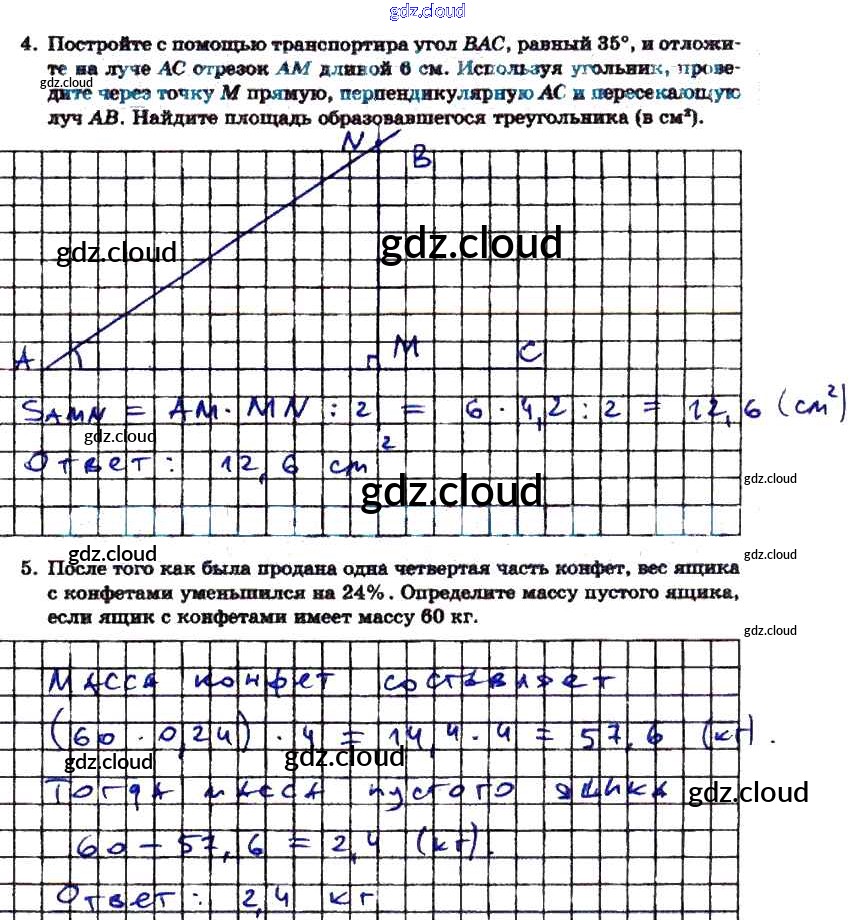 gdz.cloud
4. Постройте с помощью транспортира угол BAC, равный 35°, и отложи-
те на луче AC отрезок AM длиной 6 см. Используя угольник, прове-
gdz.cloud
дите через точку M прямую, перпендикулярную AC и пересекающую
луч AB. Найдите площадь образовавшегося треугольника (в см²).
N B
gdz.cloud gdz.cloud
A M C
SAMN = AM · MN : 2 = 6 · 4,2 : 2 = 12,6 (см²)
gdz.cloud
Ответ: 12,6 см²
gdz.cloud gdz.cloud
gdz.cloud gdz.cloud
5. После того как была продана одна четвертая часть конфет, вес ящика
с конфетами уменьшился на 24%. Определите массу пустого ящика,
если ящик с конфетами имеет массу 60 кг.
gdz.cloud
Масса конфет составляет
(60 · 0,24) · 4 = 14,4 · 4 = 57,6 (кг).
gdz.cloud gdz.cloud
Тогда масса пустого ящика
gdz.cloud
60 – 57,6 = 2,4 (кг).
Ответ: 2,4 кг